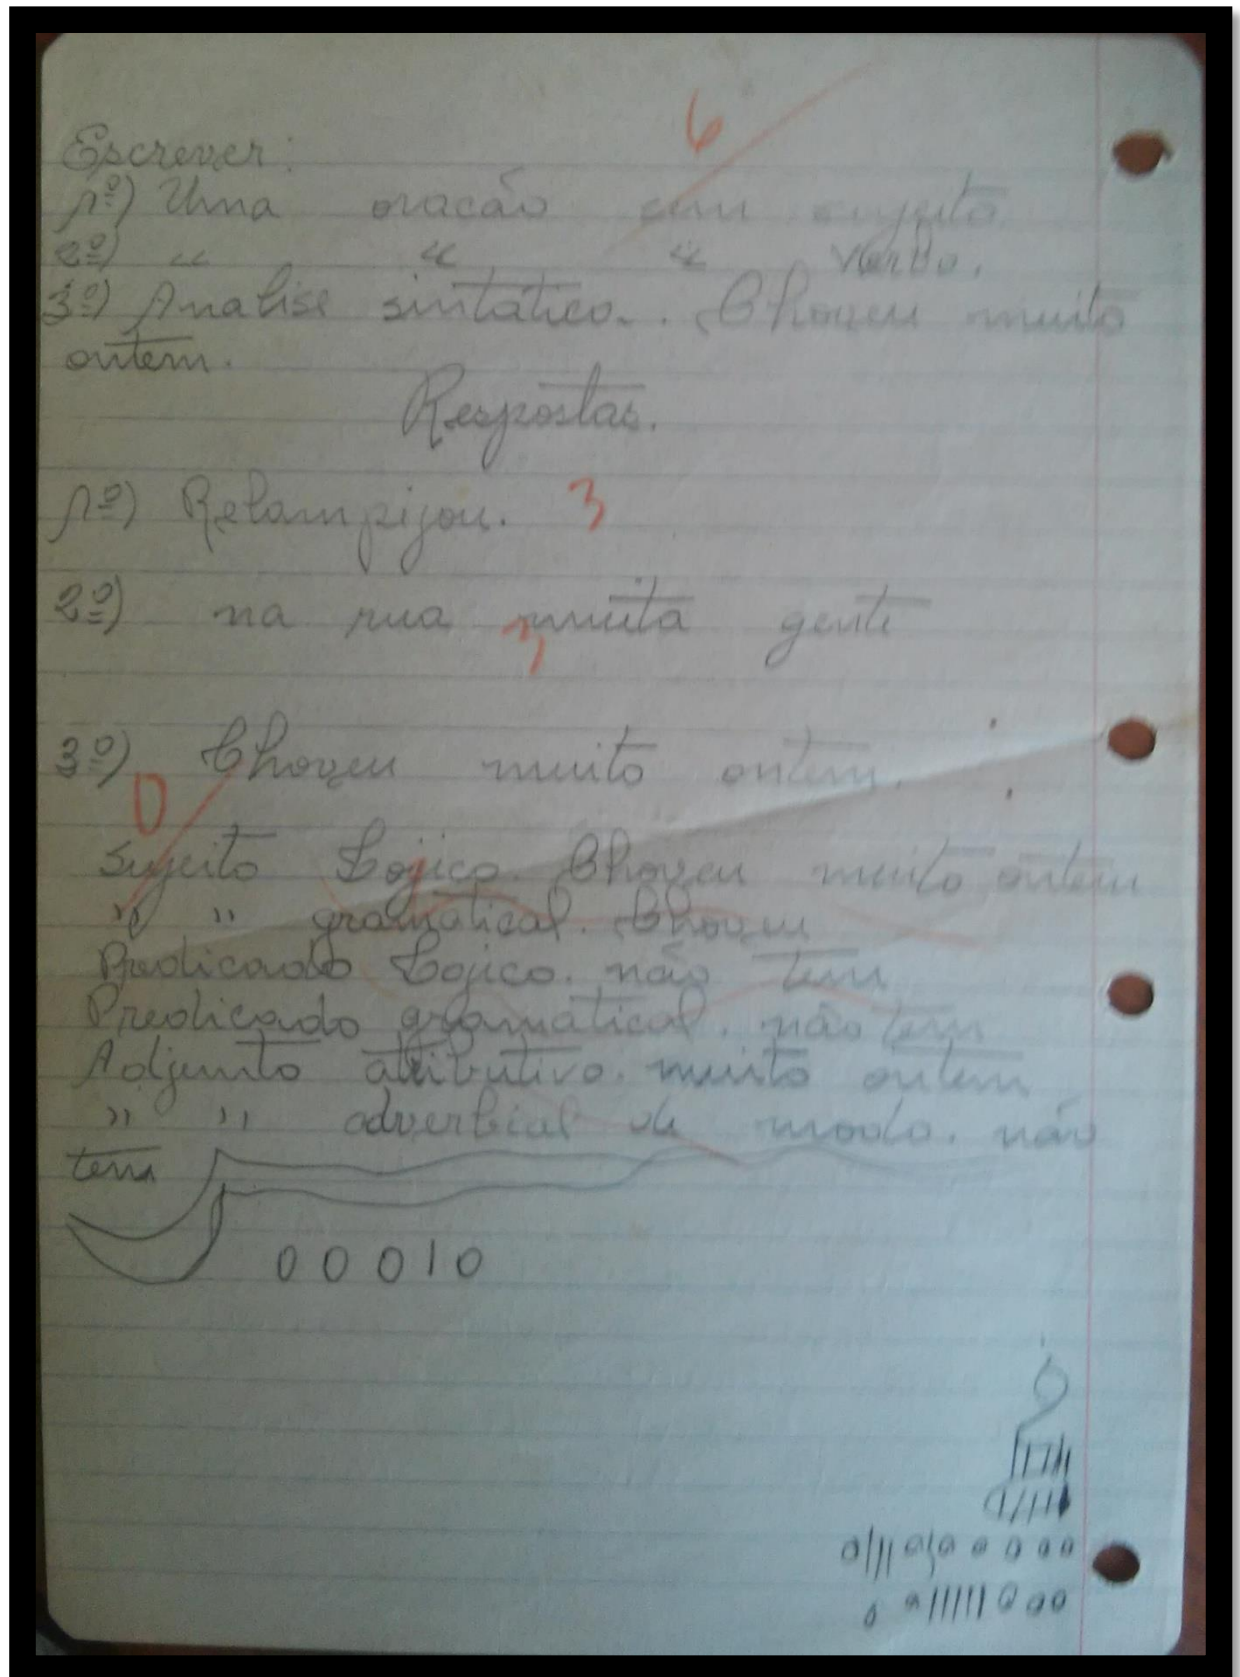 6
Escrever:
1º) Uma oracão sem sujeito.
2º) " " " verbo.
3º) Analise sintático. Choveu muito
ontem.
Respostas.
1º) Relampijou. 3
2º) na rua muita gente
3
3º) Choveu muito ontem.
0
Sujeito Lojico. Choveu muito ontem
" " gramatical. Choveu
Predicado Lojico. não tem
Predicado gramatical. não tem
Adjunto atributivo. muito ontem
" " adverbial de modo. não
tem
00010